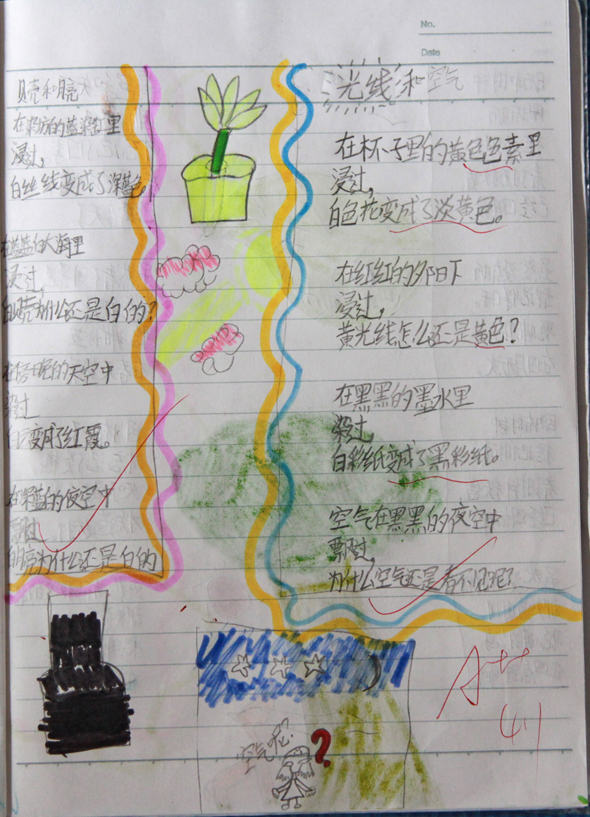 No.
Date
贝壳和月亮
在粉红的蓝粉红里
浸过,
白丝线变成了深蓝色。
在蓝蓝的大海里
浸过,
白贝壳为什么还是白的?
在昏暗的天空中
染过
白云变成了红霞。
在黑蓝的夜空中
飘过,
白月亮为什么还是白的
光线和空气
在杯子里的黄色色素里
浸过,
白色花变成了淡黄色。
在红红的夕阳下
浸过,
黄光线怎么还是黄色?
在黑黑的墨水里
染过
白彩纸变成了黑彩纸。
空气在黑黑的夜空中
飘过,
为什么空气还是看不见呢?
空气呢?
?
A++